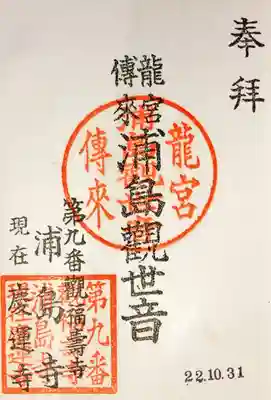 奉拜
龍宮
傳來
浦島觀世音
龍宮
傳來
第九番觀福壽寺
浦島寺
現在
慶運寺
第九番
22.10.31